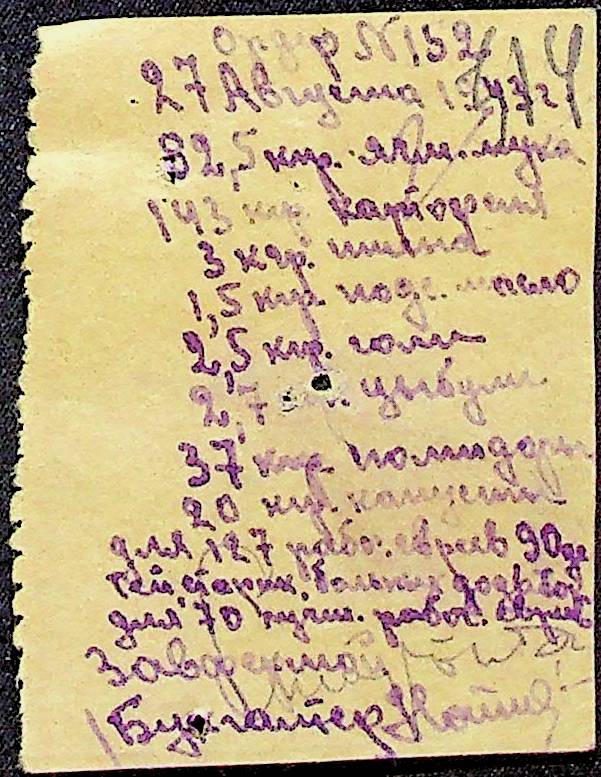 Ордер N 152
27 Августа 1943 г 714
82,5 кгр. ячм. мука
143 кгр картофеля
3 кгр. пшена
1,5 кгр. подс. масло
2,5 кгр. соли
2,7 цыбули
37 кгр. помидоры
20 кгр. капусты
для 127 рабоч. евреев 90 де
тей, старик, больных
для 70 лучш. рабоч. евреев
Завфермой
Бухгалтер